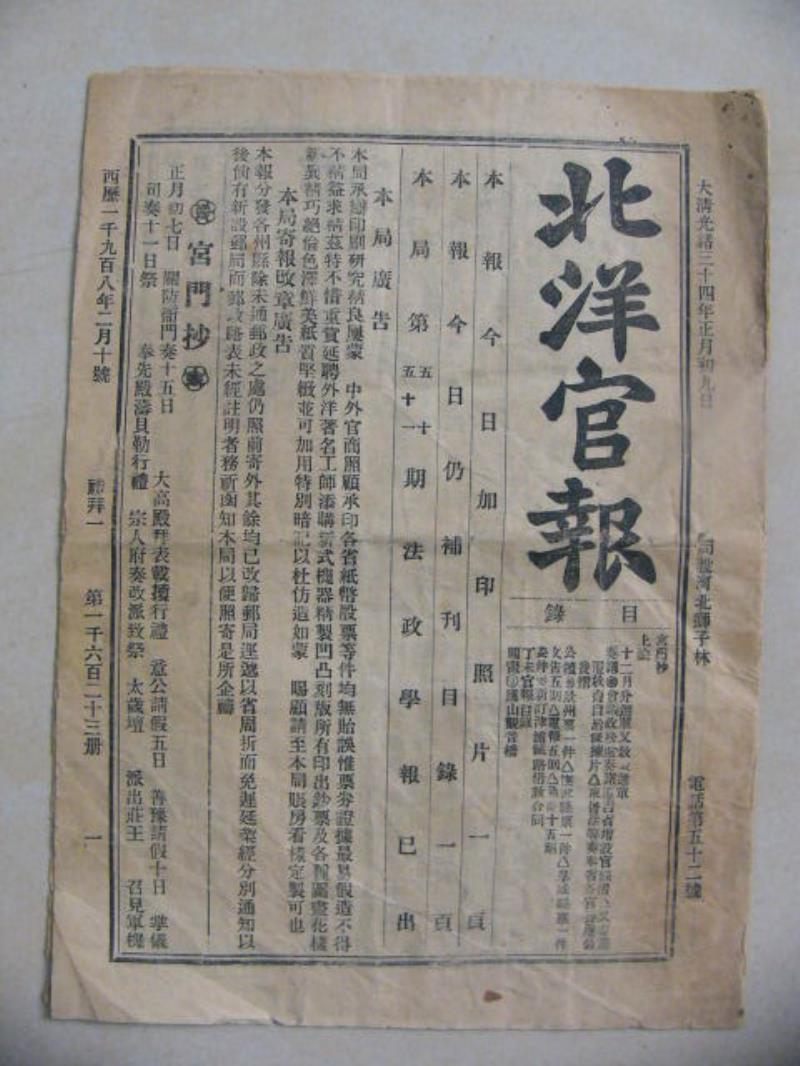 大清光緒三十四年正月初九日
河北獅子林
電話第五十二號
北洋官報
目錄
宮門抄
上諭
本報今日加印照片一頁
本報今日仍補刊目錄一頁
本局第五十五十一期法政學報已出
本局廣告
本局承辦印刷研究精良屢蒙 中外官商照顧承印各省紙幣股票等件均無貽誤惟票券證據最易假造不得
不精益求精茲特不惜重資延聘外洋著名工師添購新式機器精製凹凸刻版所有印出鈔票及各種圖畫花樣
新義精巧絕倫色澤鮮美紙質堅緻並可加用特別暗記以杜仿造如蒙 賜顧請至本局賬房看樣定製可也
本局寄報改章廣告
本報分發各州縣除未通郵政之處仍照前寄外其餘均已改歸郵局逕遞以省周折而免遲延業經分別通知以
後倘有新設郵局而郵政路表未經註明者務祈函知本局以便照寄是所企禱
宮門抄
正月初七日 關防衙門奏十五日 大高殿拜表載攌行禮 意公請假五日 善豫請假十日 掌儀
司奏十一日祭 奉先殿濤貝勒行禮 宗人府奏改派致祭 太歲壇 派出莊王 召見軍機
西歷一千九百八年二月十號
禮拜一
第一千六百二十三册
一